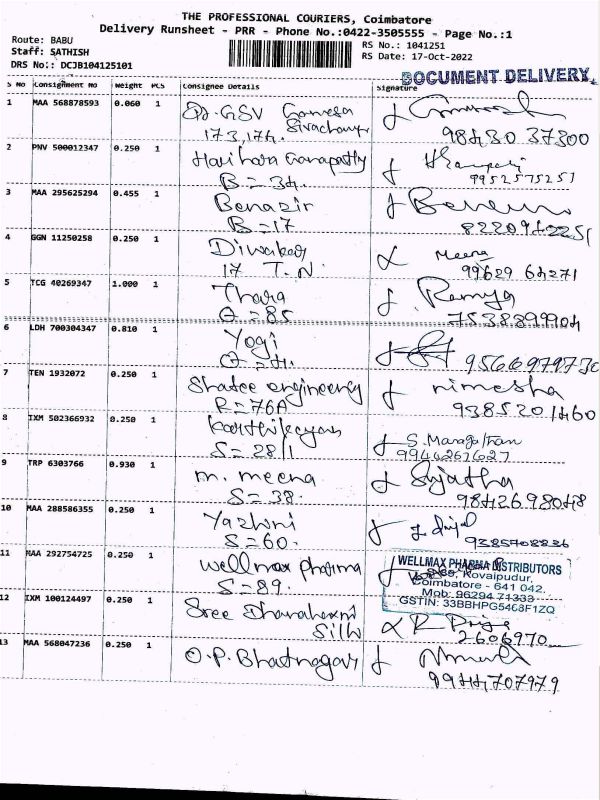 THE PROFESSIONAL COURIERS, Coimbatore
Delivery Runsheet - PRR - Phone No.:0422-3505555 - Page No.:1
Route: BABU
Staff: SATHISH
DRS No:: DCJB104125101
RS No.: 1041251
RS Date: 17-Oct-2022
DOCUMENT DELIVERY
S No Consignment No Weight PCS Consignee Details Signature
1 MAA 568878593 0.060 1 GSV Ganesa
173,174. Sivachariyar
98430 37300
2 PNV 500012347 0.250 1 Hari hara Ganapathy
B = 34.
9952575251
3 MAA 295625294 0.455 1 Benazir
B = 17
8220942251
4 GGN 11250258 0.250 1 Diwakar Meena
17 T.N. 99629 64271
5 TCG 40269347 1.000 1 Thara Ramya
= 85 7538899904
6 LDH 700304347 0.810 1 Yogi
= 4. 9566979730
7 TEN 1932072 0.250 1 engineering nimesha
R = 76A 9385201460
8 IXM 502366932 0.250 1 Karthikeyan
S = 28/1 9944261627
9 TRP 6303766 0.930 1 m. meena Sujatha
S = 38. 9842698048
10 MAA 288586355 0.250 1 Yazhini
S = 60. 9385708836
11 MAA 292754725 0.250 1 wellmax pharma
S = 89.
WELLMAX PHARMA DISTRIBUTORS
S-89, Kovaipudur,
Coimbatore - 641 042.
Mob: 96294 71333
GSTIN: 33BBHPG5468F1ZQ
12 IXM 100124497 0.250 1 Sree R Priya
Silk 2606970
13 MAA 568047236 0.250 1 O.P. Bhatnagar
9944,707979